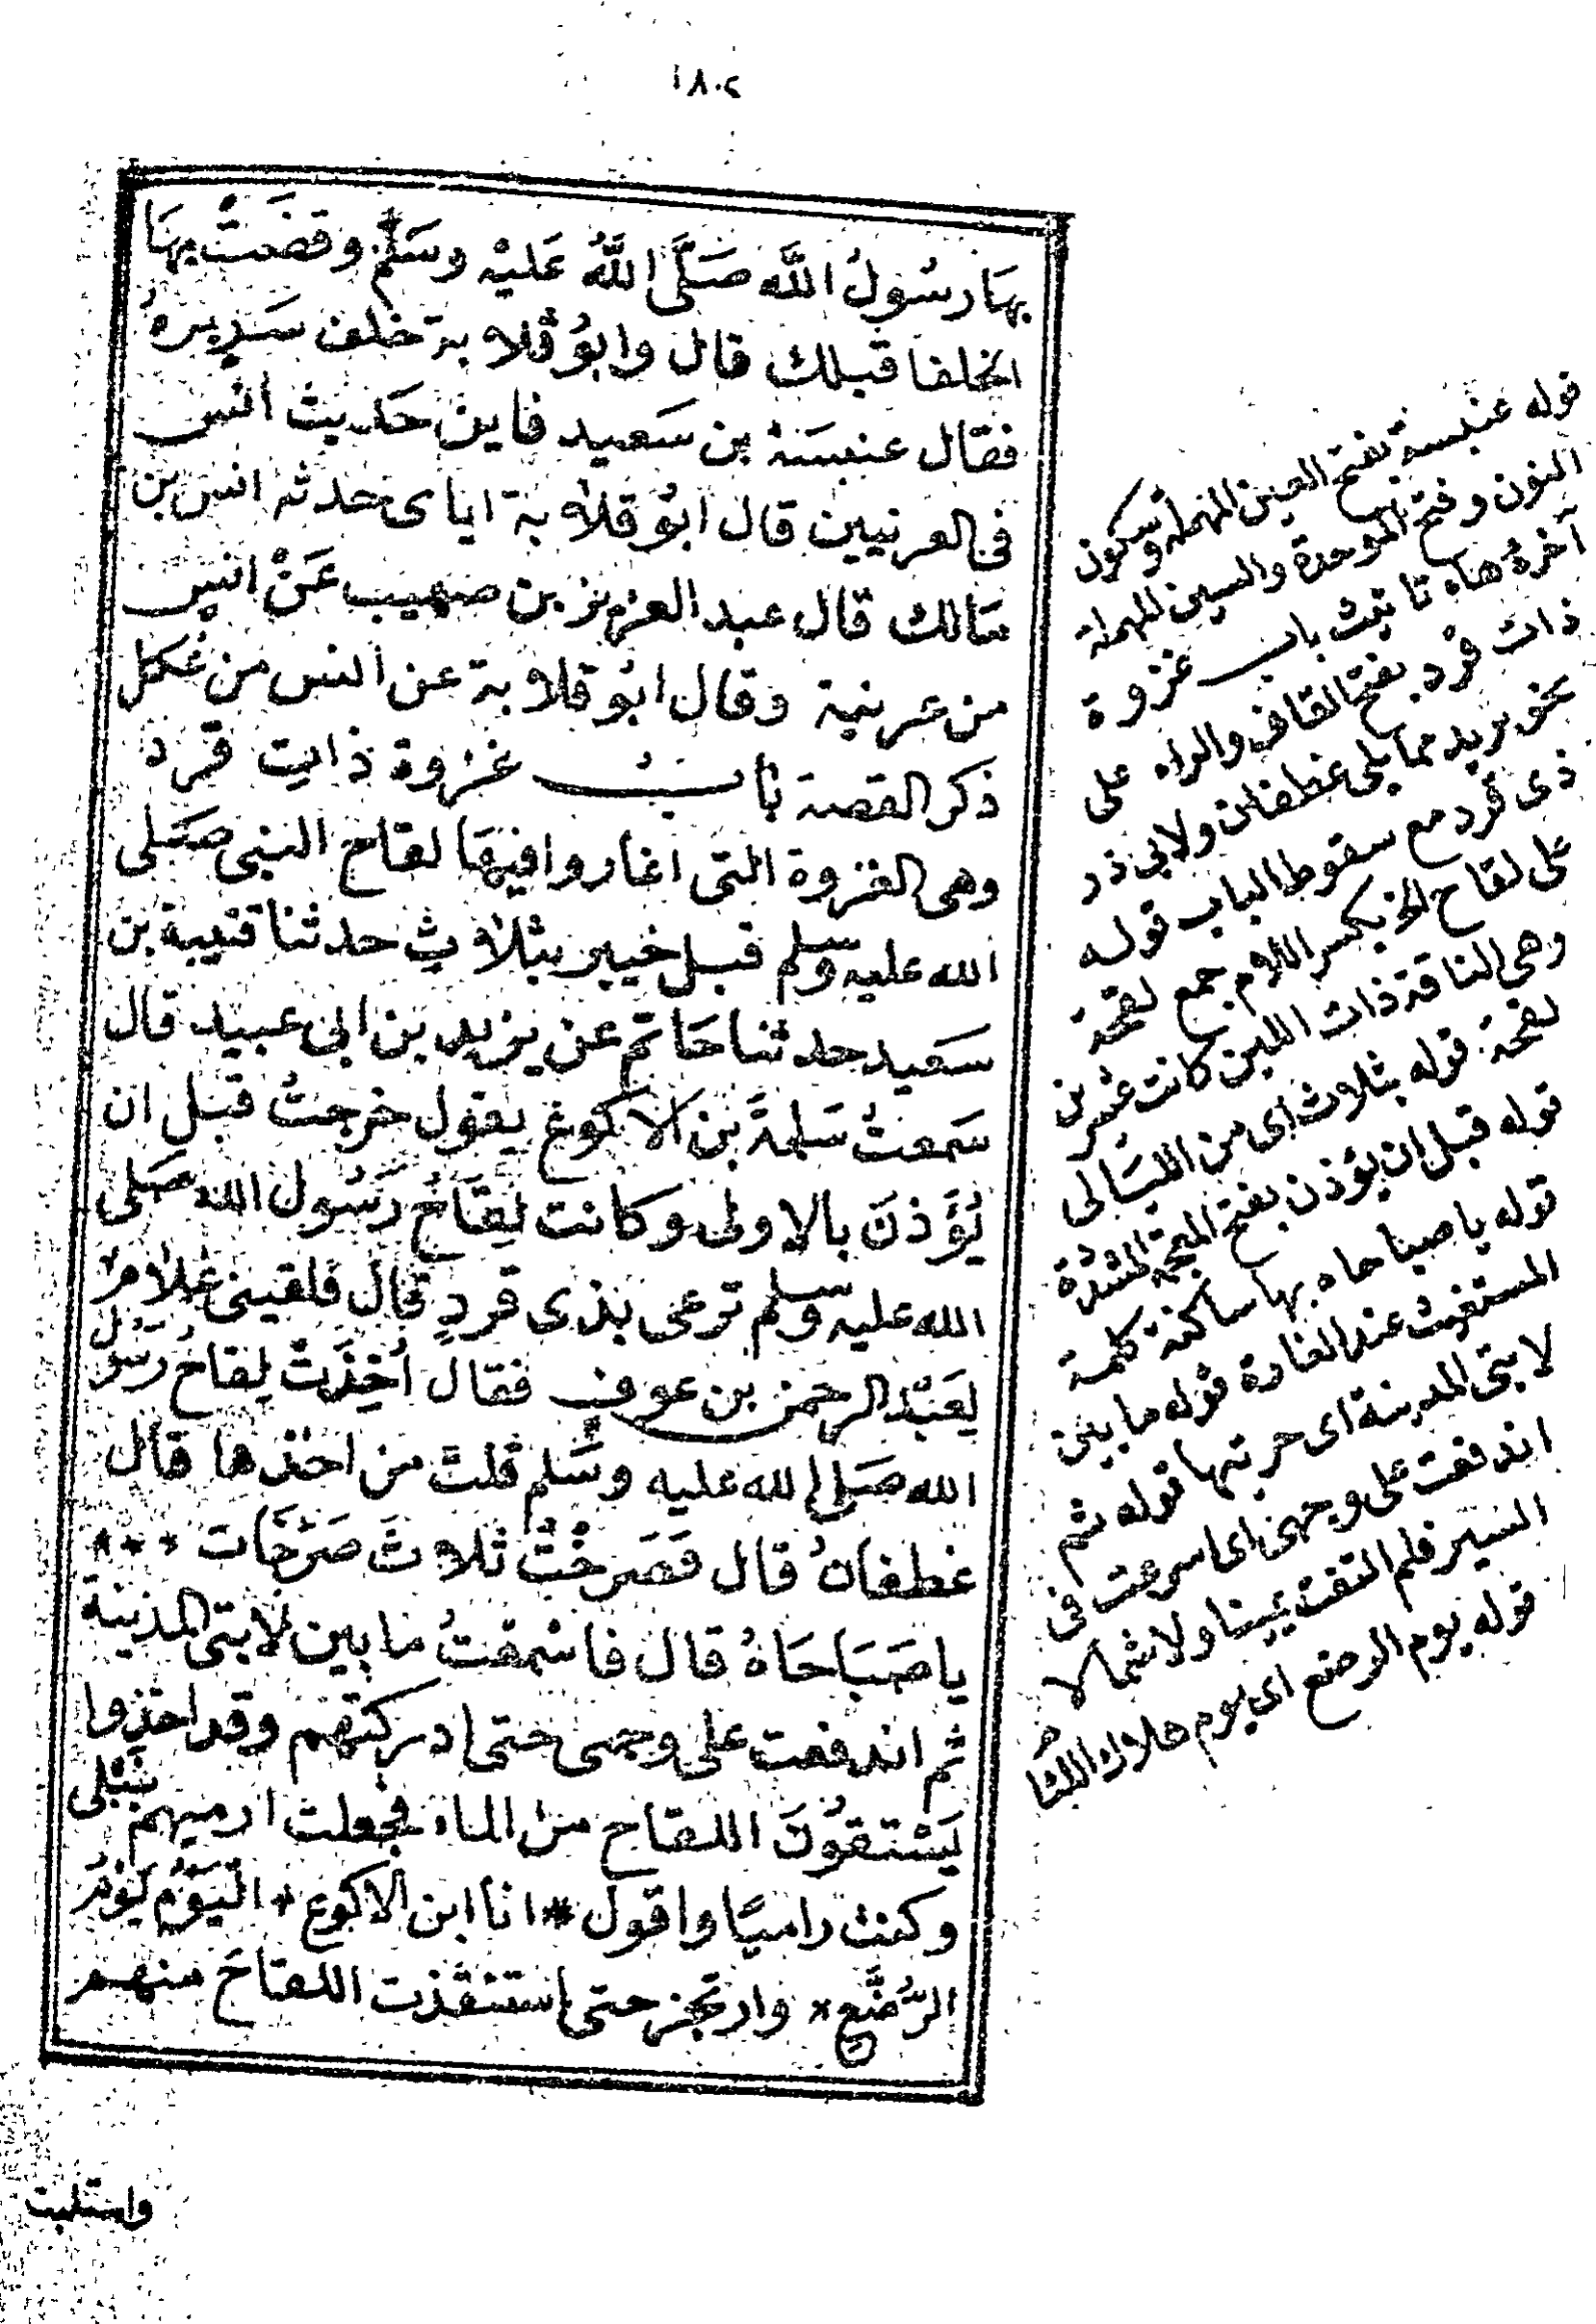 ١٨٠٢
بهَا رسُولُ اللَّه صَلَّى اللَّهُ عَليْه وسَلَّم وقضَتْ بهَا
الخلفا قبلك قال وابُو قُلابة خلف سَرِيرهُ
فقال عنبسَة بن سَعيد فاين حَديث انس
فى العرنيين قال ابُو قلابة اياى حدثه انس بن
مَالك قال عبد العزيز بن صهيب عَنْ انس
من عرينة وقال ابُو قلابة عن انس من عُكل
ذكر القصة بَابُ غزوة ذات قرد
وهى الغزوة التى اغاروا فيهَا لقاح النبى صَلى
الله عليه وسلم قبل خيبر بثلاث حدثنا قتيبة بن
سَعيد حدثنا حَاتم عن يزيد بن ابى عبيد قال
سَمعتُ سَلمَةَ بن الاكوع يقول خرجتُ قبل ان
يُؤَذنَ بالاولى وكانت لِقَاحُ رَسُول الله صَلى
الله عليه وسلم ترعى بذى قردٍ قال فلقينى غلامٌ
لِعَبْد الرحمن بن عوف فقال اُخِذَتْ لِقاحُ رسُول
الله صَلى الله عليه وسَلم قلت من اخذها قال
غطفانُ قال فصَرخْتُ ثلاثَ صَرخَات ***
يا صَبَاحَاهُ قال فاسْمعْتُ مَا بين لابتى المدينة
ثم اندفعت على وجهى حتى ادركتهم وقد اخذوا
يَسْتقوُنَ اللقاح من الماء فجعلت ارميهم بنَبْلى
وكنت راميًا واقول * انا ابن الاكوع * اليَوْم يَوْمُ
الرُّضَّعِ * وارتجز حتى استنقذت اللقاحَ منهم
واستلبت
قوله عنبسة بفتح العين المهملة وسكون
النون وفتح الموحدة والسين المهملة
آخرهُ هاء تانيث باب غزوة
ذات قرد بفتح القاف والراء على
نحو بريد مما يلى غطفان ولابى ذر
ذى قرد مع سقوط الباب قوله
على لقاح الخ بكسر اللام جمع لقحة
وهى الناقة ذات اللبن كانت عشرين
لقحة قوله بثلاث اى من الليَالى
قوله قبل ان يؤذن بفتح المعجمة المشددة
قوله يا صباحاه بها ساكنة كلمة
المستغيث عند الغارة قوله ما بين
لابتى المدينة اى حرتيها قوله ثم
اندفعت على وجهى اى اسرعت فى
السير فلم التفت يمينا ولا شمالا
قوله يوم الرضع اى يوم هلاك اللئام